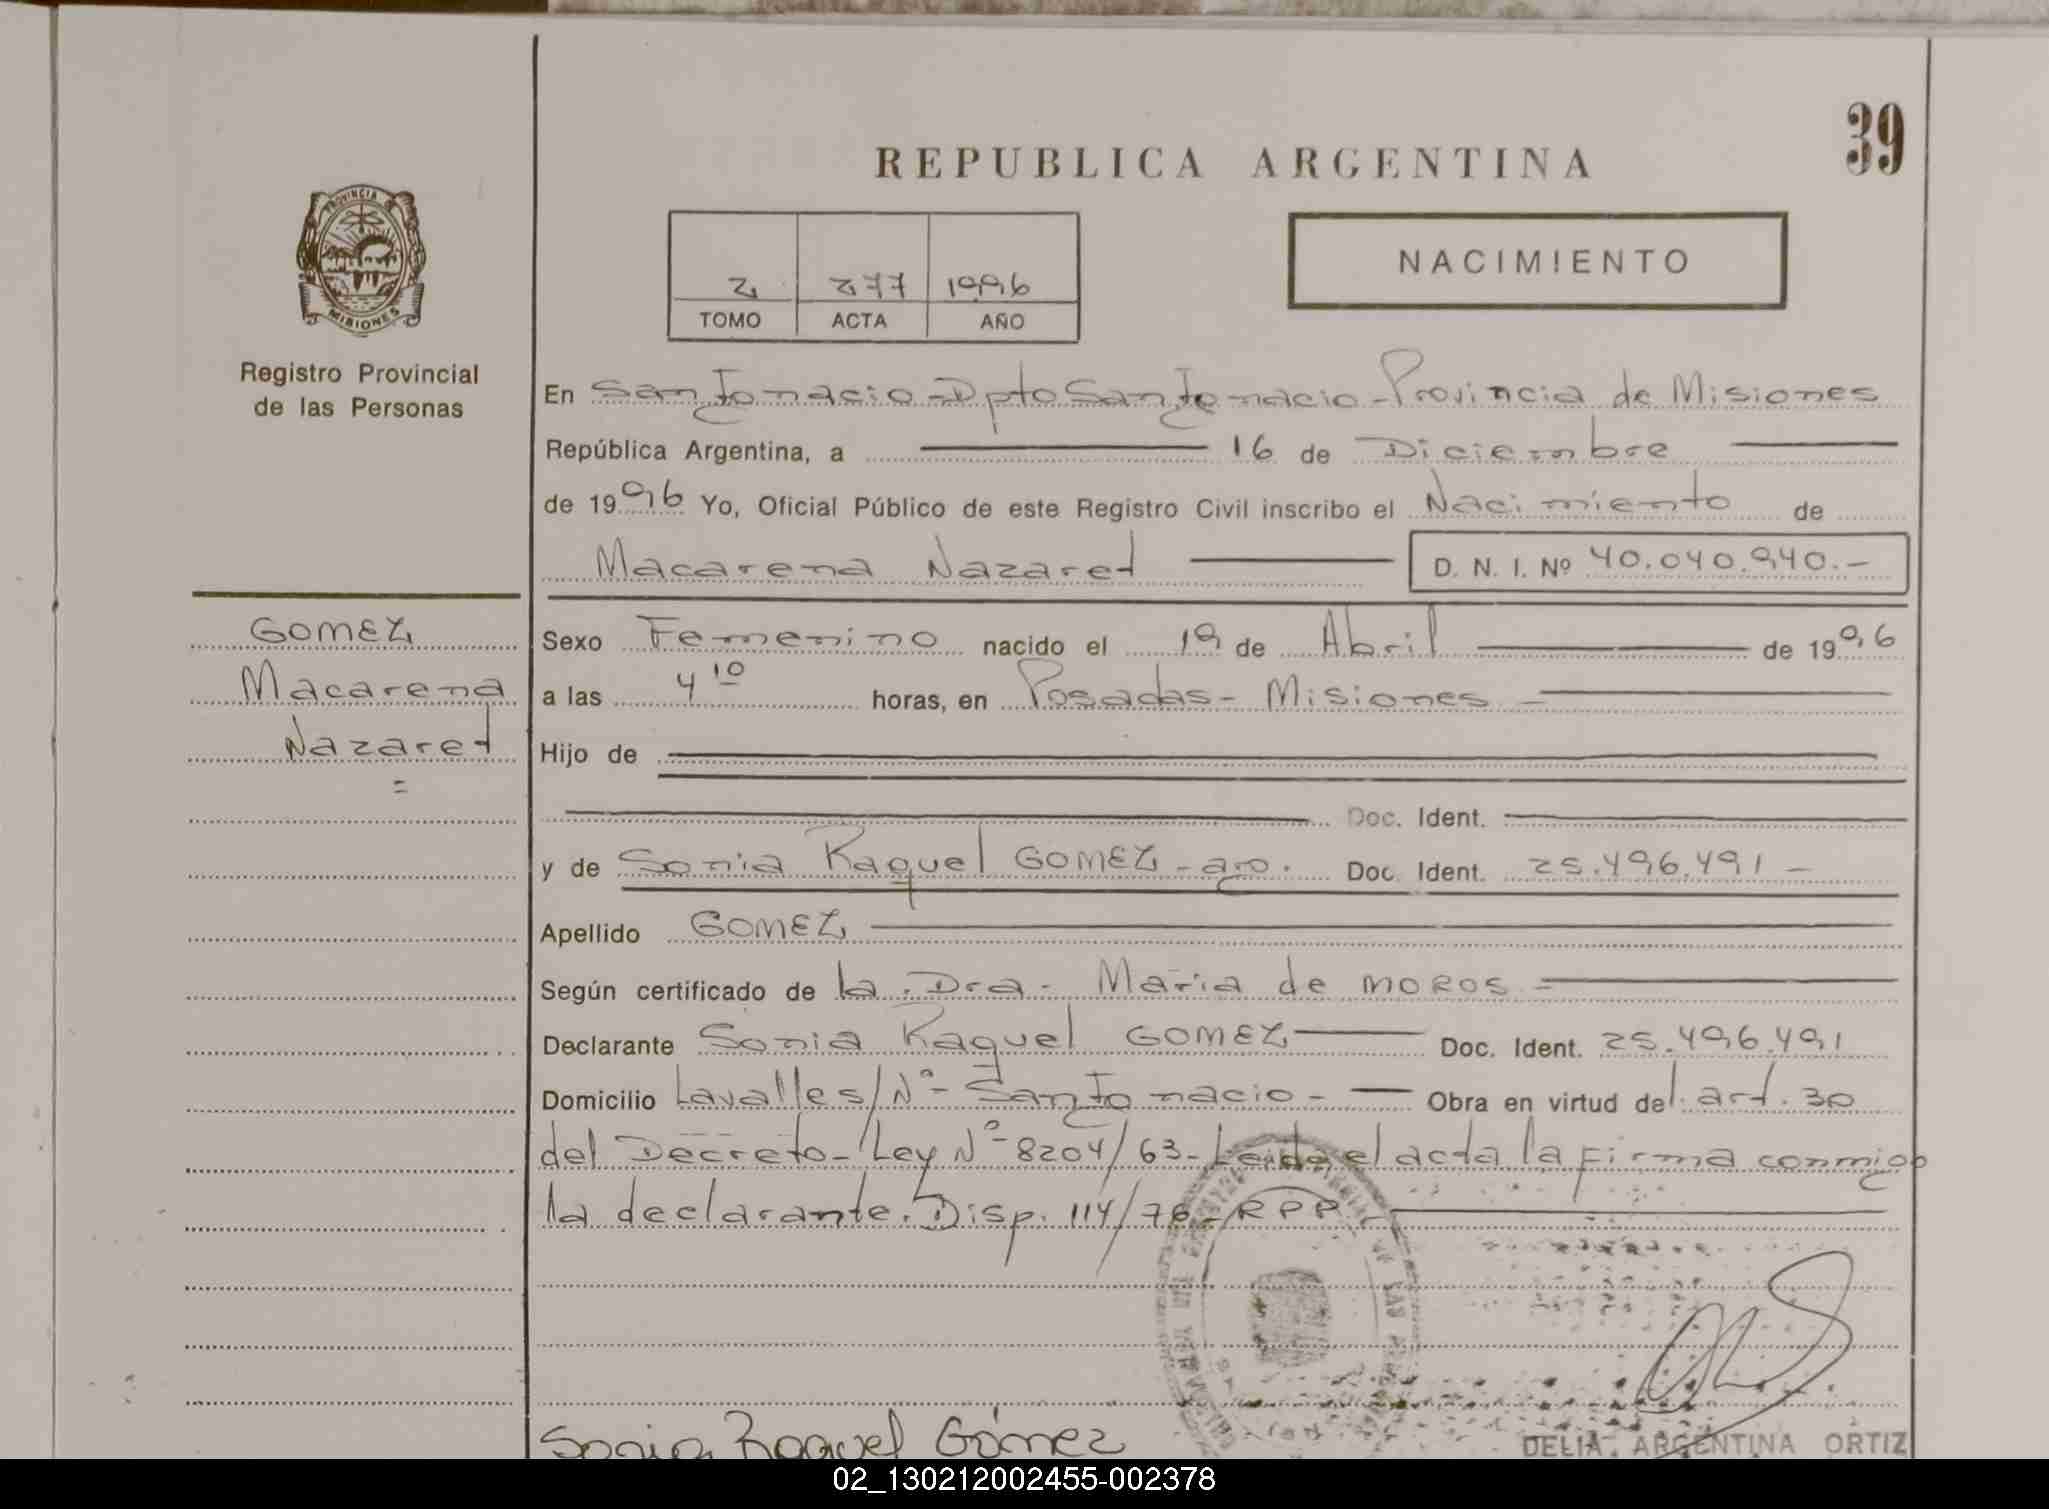 39
REPUBLICA ARGENTINA
PROVINCIA DE
MISIONES
Registro Provincial
de las Personas
2 277 1996
TOMO ACTA AÑO
NACIMIENTO
En San Ignacio - Dpto San Ignacio - Provincia de Misiones
República Argentina, a 16 de Diciembre
de 1996 Yo, Oficial Público de este Registro Civil inscribo el Nacimiento de
Macarena Nazaret D. N. I. Nº 40.040.940.-
GOMEZ
Macarena
Nazaret
=
Sexo Femenino nacido el 19 de Abril de 1996
a las 4 10 horas, en Posadas - Misiones -
Hijo de
Doc. Ident.
y de Sonia Raquel GOMEZ - arg. Doc. Ident. 25.496.491 -
Apellido GOMEZ
Según certificado de la Dra. Maria de MOROS =
Declarante Sonia Raquel GOMEZ Doc. Ident. 25.496.491
Domicilio Lavalle s/Nº - San Ignacio - Obra en virtud del art. 30
del Decreto - Ley Nº 8204/63 - Leida el acta la firma conmigo
la declarante. Disp. 114/76 - RPP -
Sonia Raquel Gómez
DELIA ARGENTINA ORTIZ
02_130212002455-002378